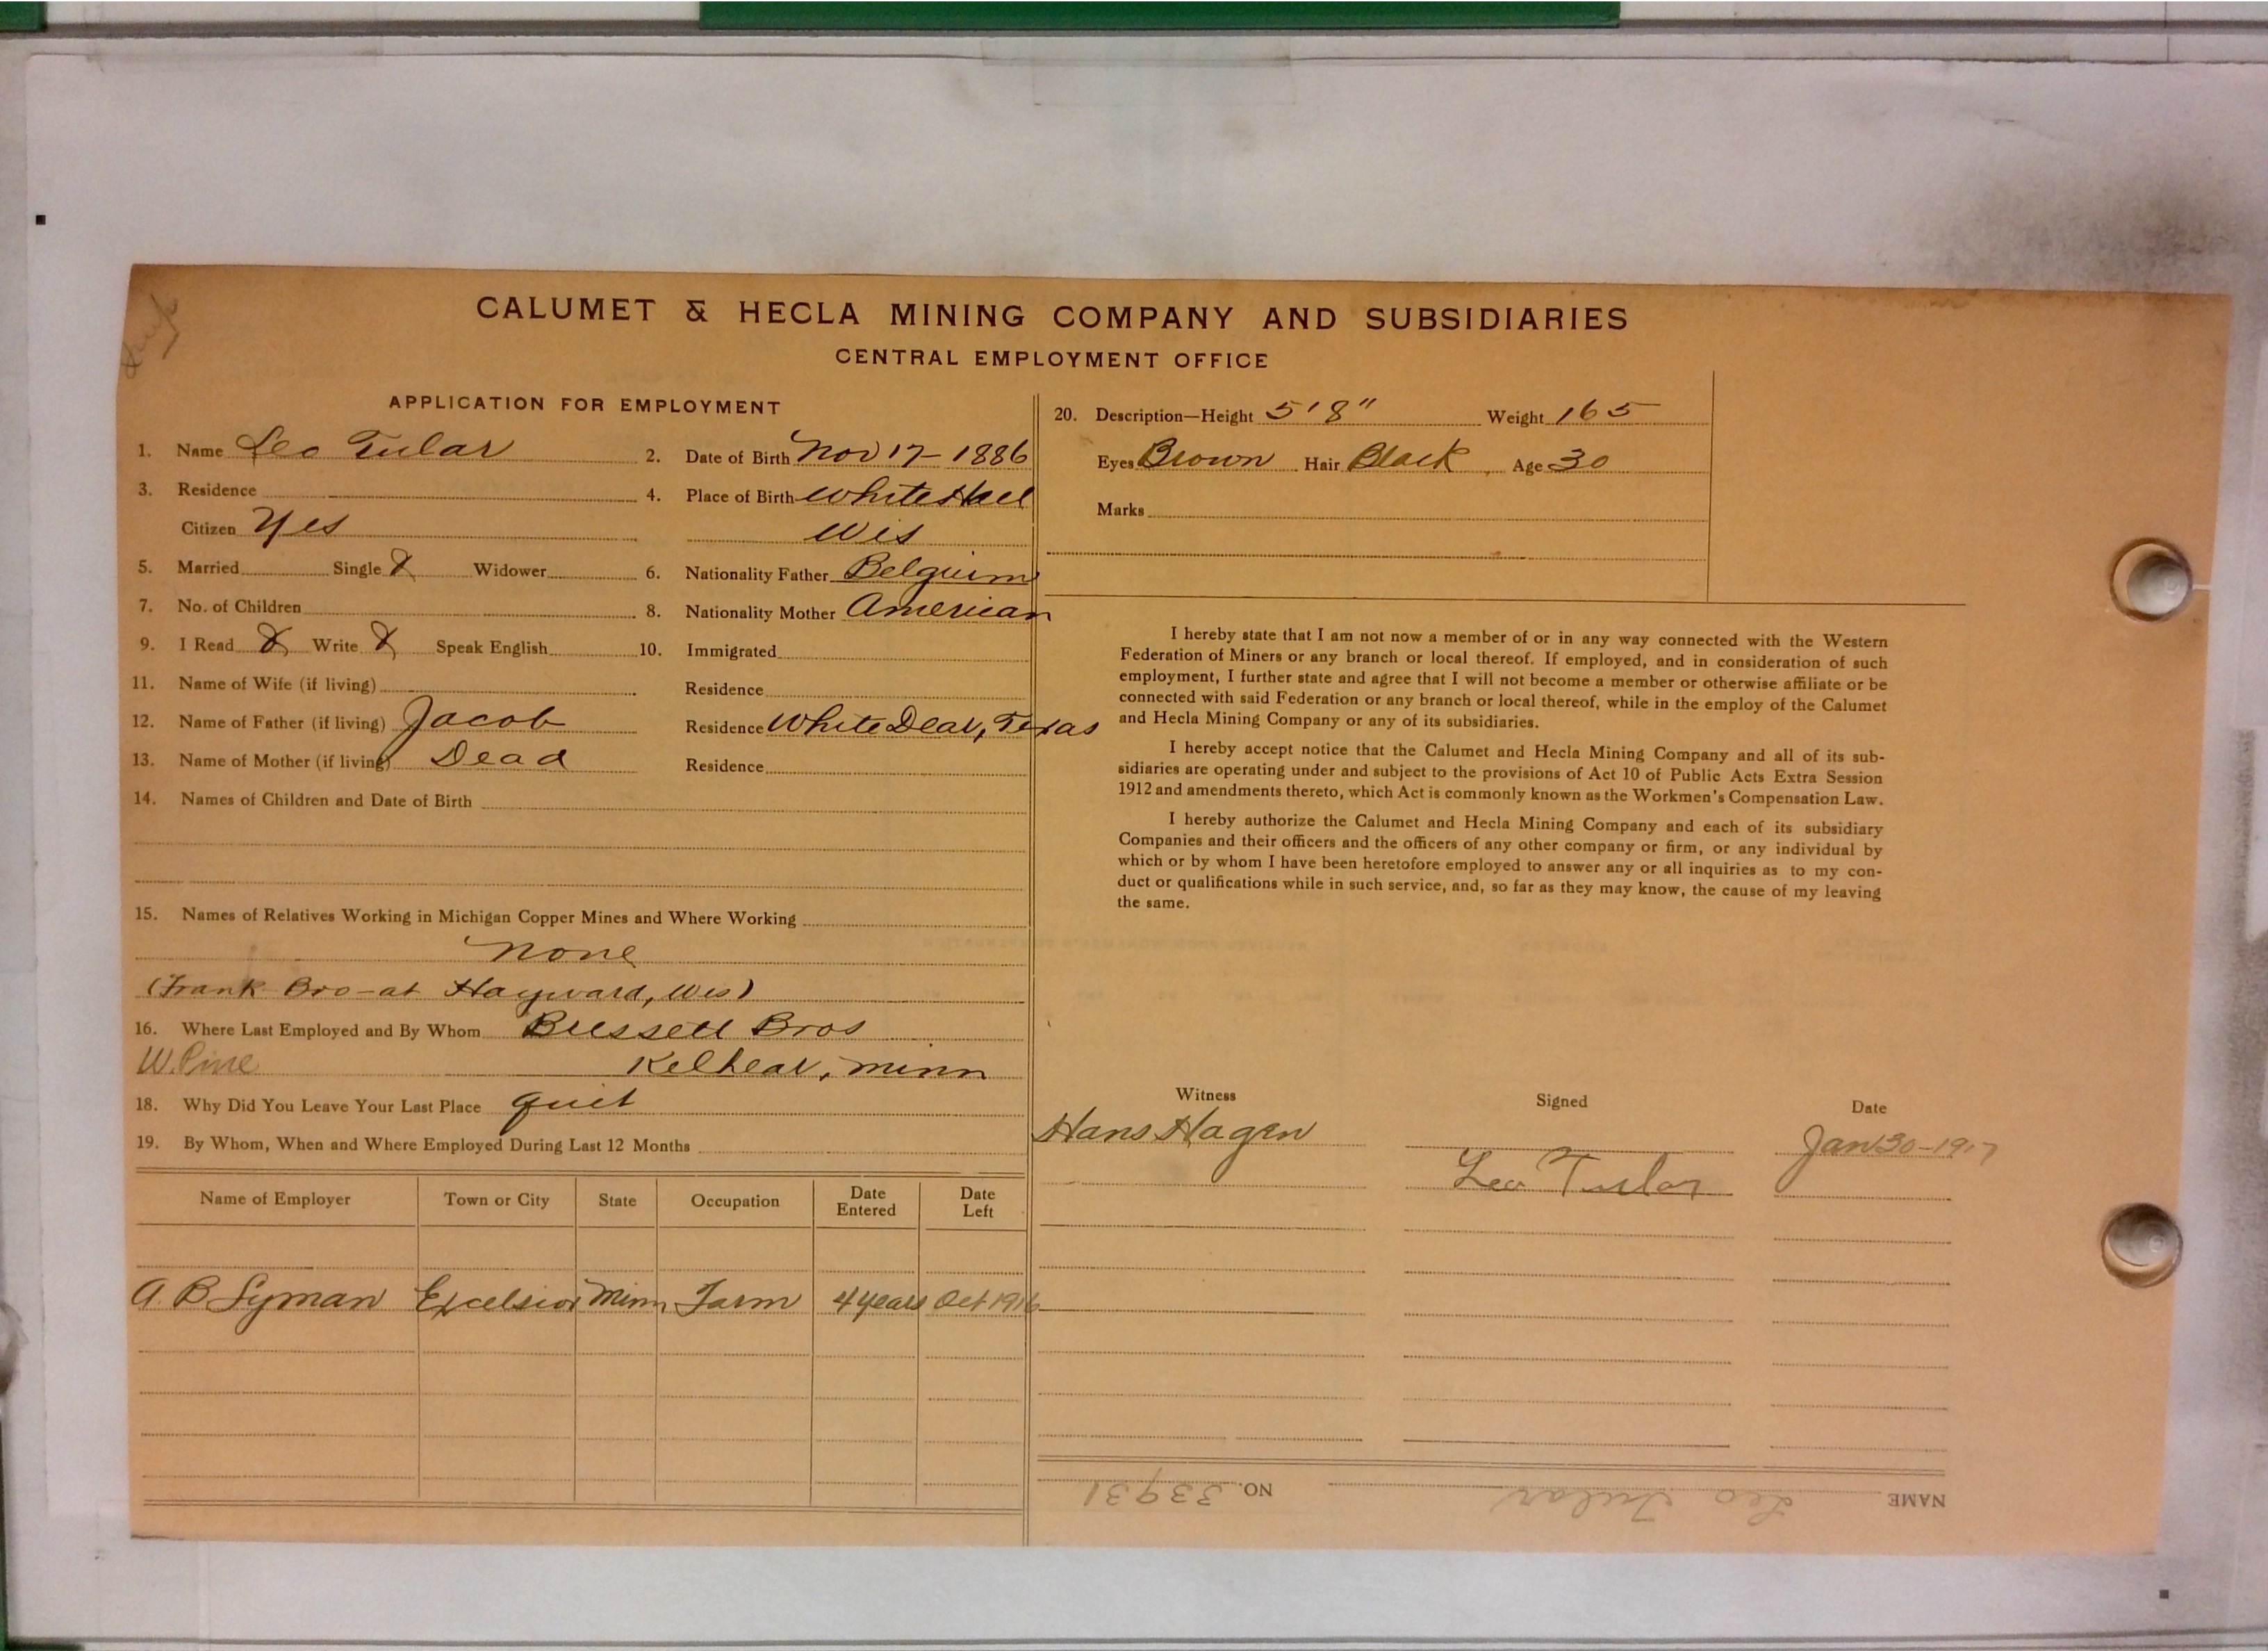 CALUMET & HECLA MINING COMPANY AND SUBSIDIARIES
CENTRAL EMPLOYMENT OFFICE
APPLICATION FOR EMPLOYMENT
1. Name Leo Tular 2. Date of Birth Nov 17 - 1886
3. Residence 4. Place of Birth White Hall
Citizen Yes Wis
5. Married Single X Widower 6. Nationality Father Belguim
7. No. of Children 8. Nationality Mother American
9. I Read X Write X Speak English 10. Immigrated
11. Name of Wife (if living) Residence
12. Name of Father (if living) Jacob Residence White Dear, Texas
13. Name of Mother (if living) Dead Residence
14. Names of Children and Date of Birth
15. Names of Relatives Working in Michigan Copper Mines and Where Working
None
(Frank Bro - at Hayward, Wis)
16. Where Last Employed and By Whom Bussell Bros
W. Pine Kelhear, Minn
18. Why Did You Leave Your Last Place quit
19. By Whom, When and Where Employed During Last 12 Months
Name of Employer Town or City State Occupation Date Entered Date Left
A. B Lyman Excelsior Minn Farm 4 years Oct 1916
20. Description—Height 5'8" Weight 165
Eyes Brown Hair Black Age 30
Marks
I hereby state that I am not now a member of or in any way connected with the Western
Federation of Miners or any branch or local thereof. If employed, and in consideration of such
employment, I further state and agree that I will not become a member or otherwise affiliate or be
connected with said Federation or any branch or local thereof, while in the employ of the Calumet
and Hecla Mining Company or any of its subsidiaries.
I hereby accept notice that the Calumet and Hecla Mining Company and all of its sub-
sidiaries are operating under and subject to the provisions of Act 10 of Public Acts Extra Session
1912 and amendments thereto, which Act is commonly known as the Workmen's Compensation Law.
I hereby authorize the Calumet and Hecla Mining Company and each of its subsidiary
Companies and their officers and the officers of any other company or firm, or any individual by
which or by whom I have been heretofore employed to answer any or all inquiries as to my con-
duct or qualifications while in such service, and, so far as they may know, the cause of my leaving
the same.
Witness Signed Date
Hans Hagen Jan 30 - 1917
Leo Tular
NAME Leo Tular NO. 33931